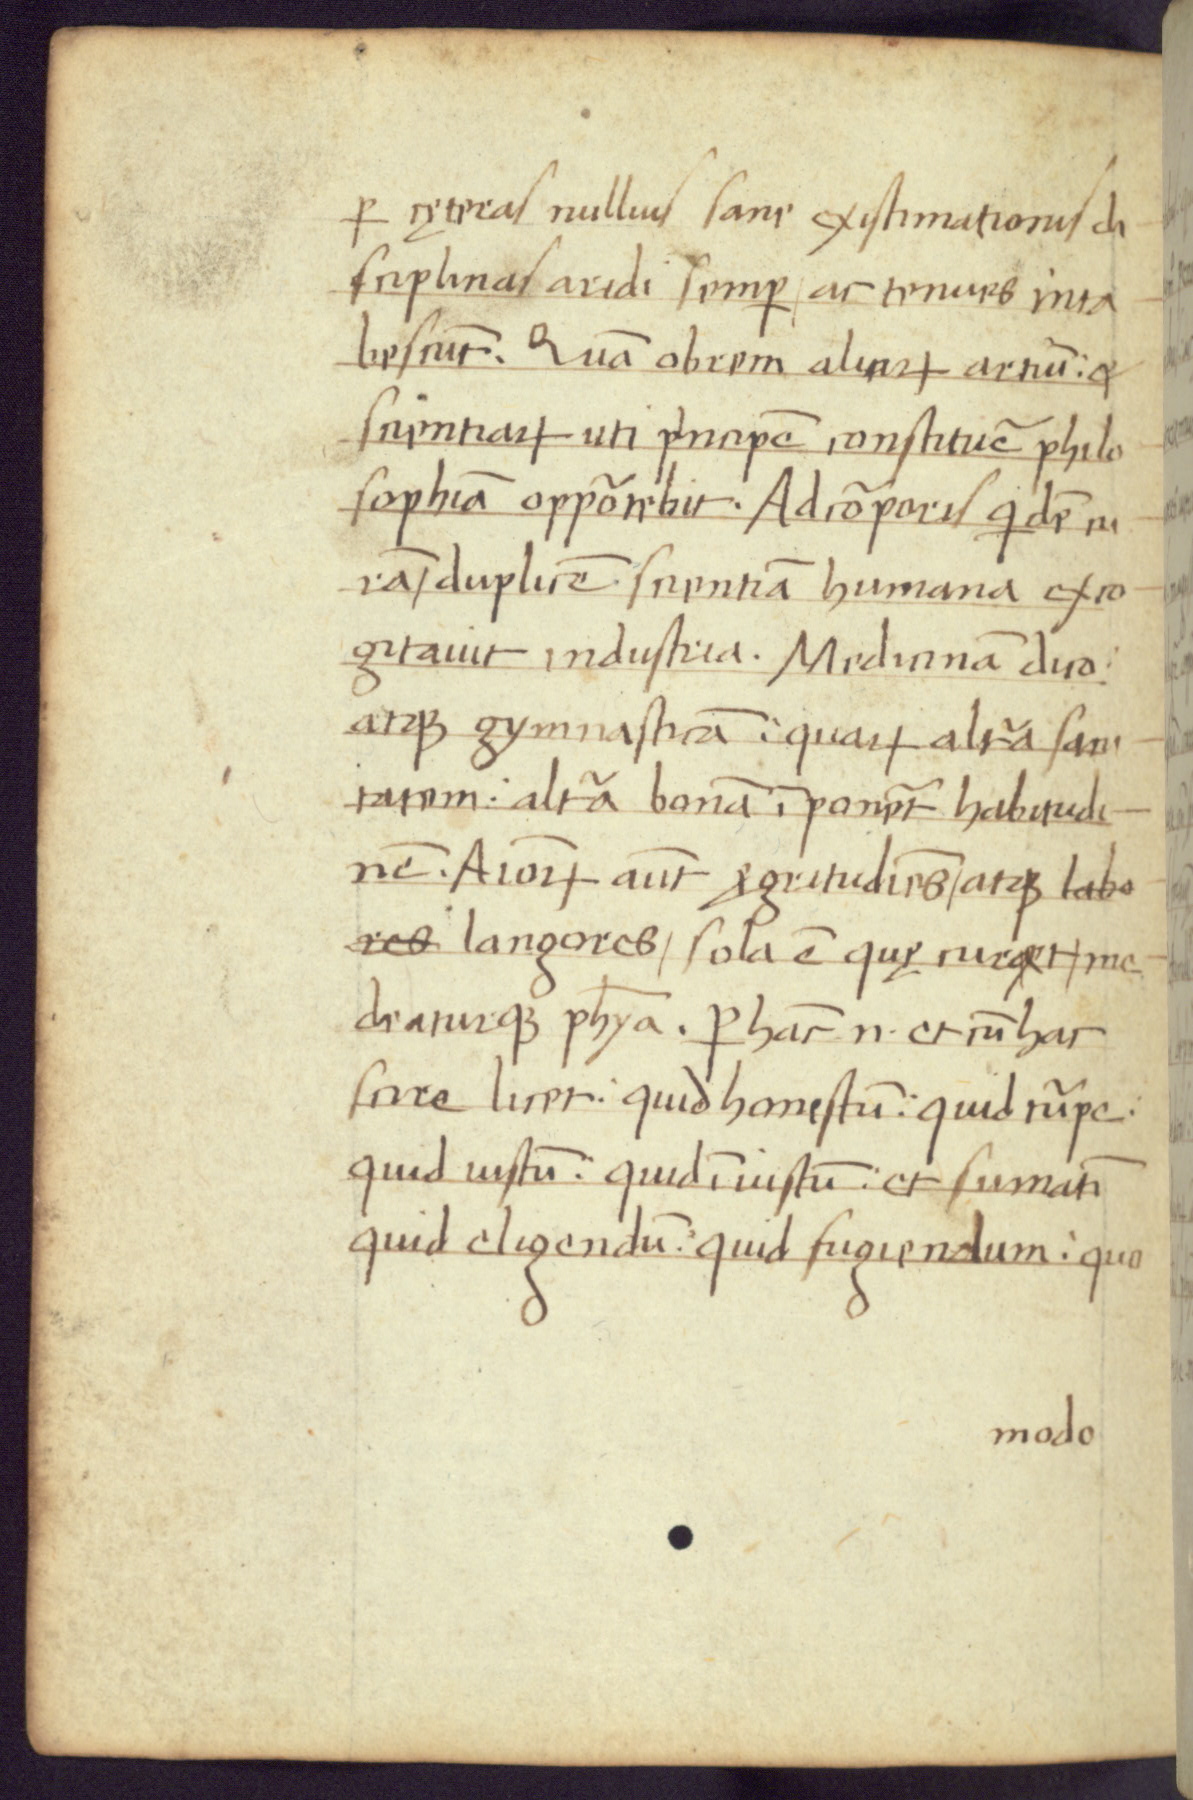 ꝑ cęteras nullius sane existimationis di
sciplinas aridi semꝑ / ac tenues inta
bescūt. Quā obrem aliaꝝ artiū : &
scientiaꝝ uti pͥncipē constituē philo
sophiā oppōrtebit. Ad cōrporis qͥdē cu
rā / duplicē scientiā humana exco
gitauit industria. Medicinā dico :
atqꝫ gymnasticā : quaꝝ altā̃ sani
tatem : altā̃ bonā īponeret̄ habitudi
nē. Aīoꝝ aūt ęgritudīes / atqꝫ labo
res langores / sola ē quę curet / me
deaturqꝫ phy̅a. Ꝑ hāc n. et cū hac
scire licet : quid honestū : quid tūrpe :
quid iustū : quid īiustū : et sumatī
quid eligendū : quid fugiendum : quo
modo